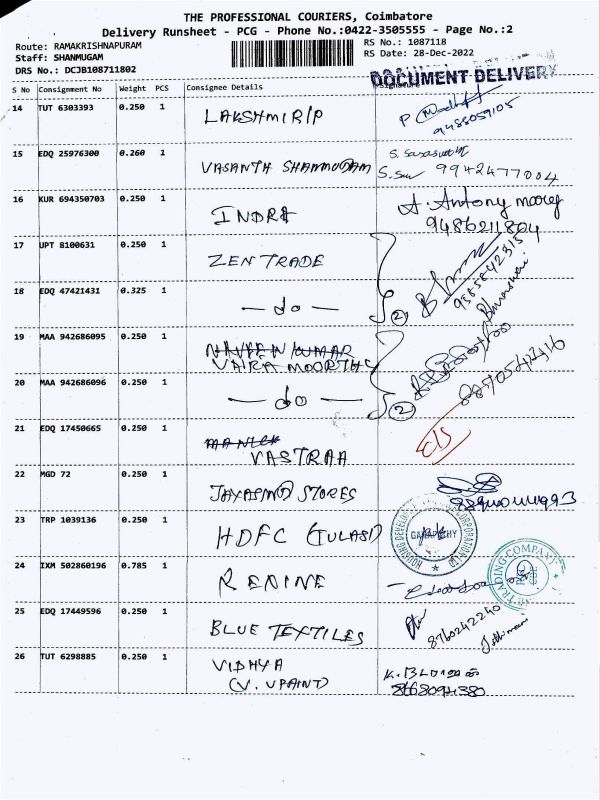 THE PROFESSIONAL COURIERS, Coimbatore
Delivery Runsheet - PCG - Phone No.:0422-3505555 - Page No.:2
Route: RAMAKRISHNAPURAM
RS No.: 1087118
Staff: SHANMUGAM
RS Date: 28-Dec-2022
DRS No.: DCJB108711802
DOCUMENT DELIVERY
S No Consignment No Weight PCS Consignee Details Signature
14 TUT 6303393 0.250 1 LAKSHMI R/P
9488059105
15 EDQ 25976300 0.260 1 VASANTH SHANMUGAM
9942477004
16 KUR 694350703 0.250 1 INDRA A. Antony
9486211804
17 UPT 8100631 0.250 1 ZEN TRADE
9585842315
18 EDQ 47421431 0.325 1 — do — 2
19 MAA 942686095 0.250 1 NAVEEN KUMAR
VAIRA MOORTHY
20 MAA 942686096 0.250 1 — do — 2
21 EDQ 17450665 0.250 1 MANICK
VASTRAA
22 MGD 72 0.250 1 STORES
23 TRP 1039136 0.250 1 HDFC (TULASI)
GANAPATHY
24 IXM 502860196 0.785 1 RENINE
TRADING COMPANY
25 EDQ 17449596 0.250 1 BLUE TEXTILES
8760242240
26 TUT 6298885 0.250 1 VIDHYA
(V. UPAINT)
8668094380